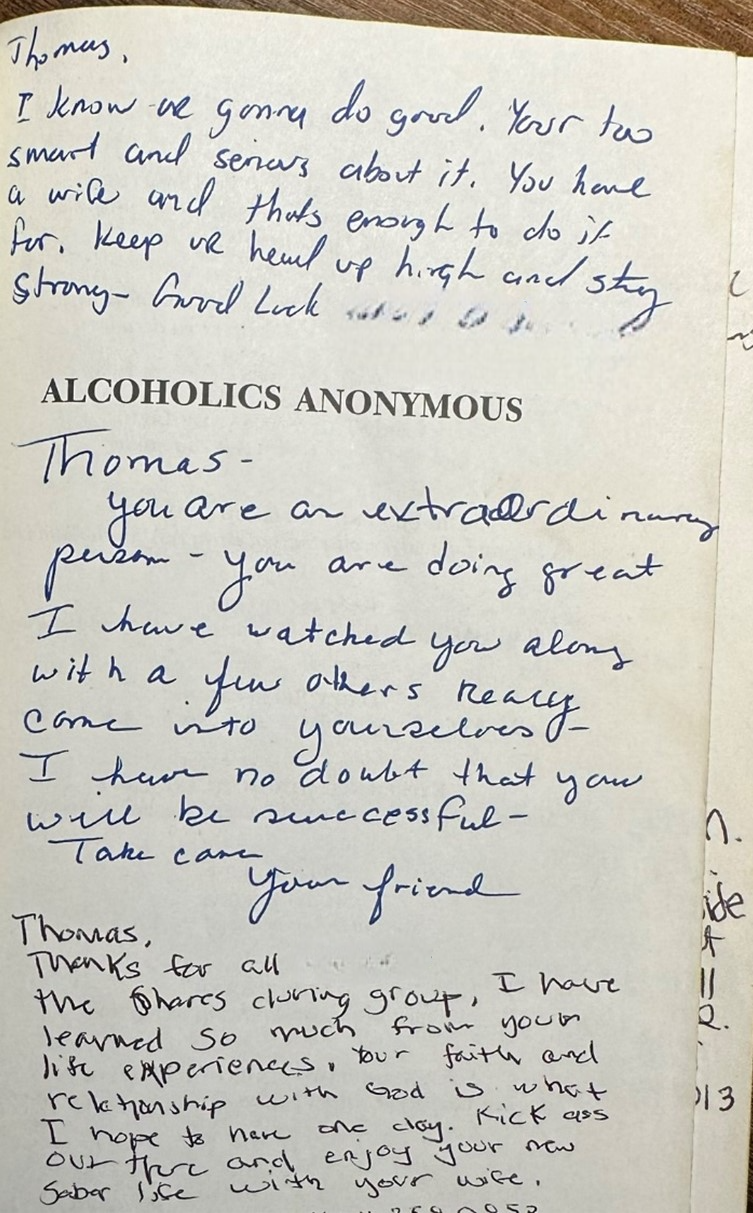 Thomas,
I know ur gonna do good. Your too
smart and serious about it. You have
a wife and thats enough to do it
for. Keep ur head up high and stay
Strong- Good Luck
ALCOHOLICS ANONYMOUS
Thomas -
you are an extraordinary
person - you are doing great
I have watched you along
with a few others really
come into yourselves -
I have no doubt that you
will be successful -
Take care
Your friend
Thomas,
Thanks for all
the Shares during group, I have
learned so much from your
life experiences. Your faith and
relationship with God is what
I hope to have one day. Kick ass
out there and enjoy your new
Sober life with your wife.